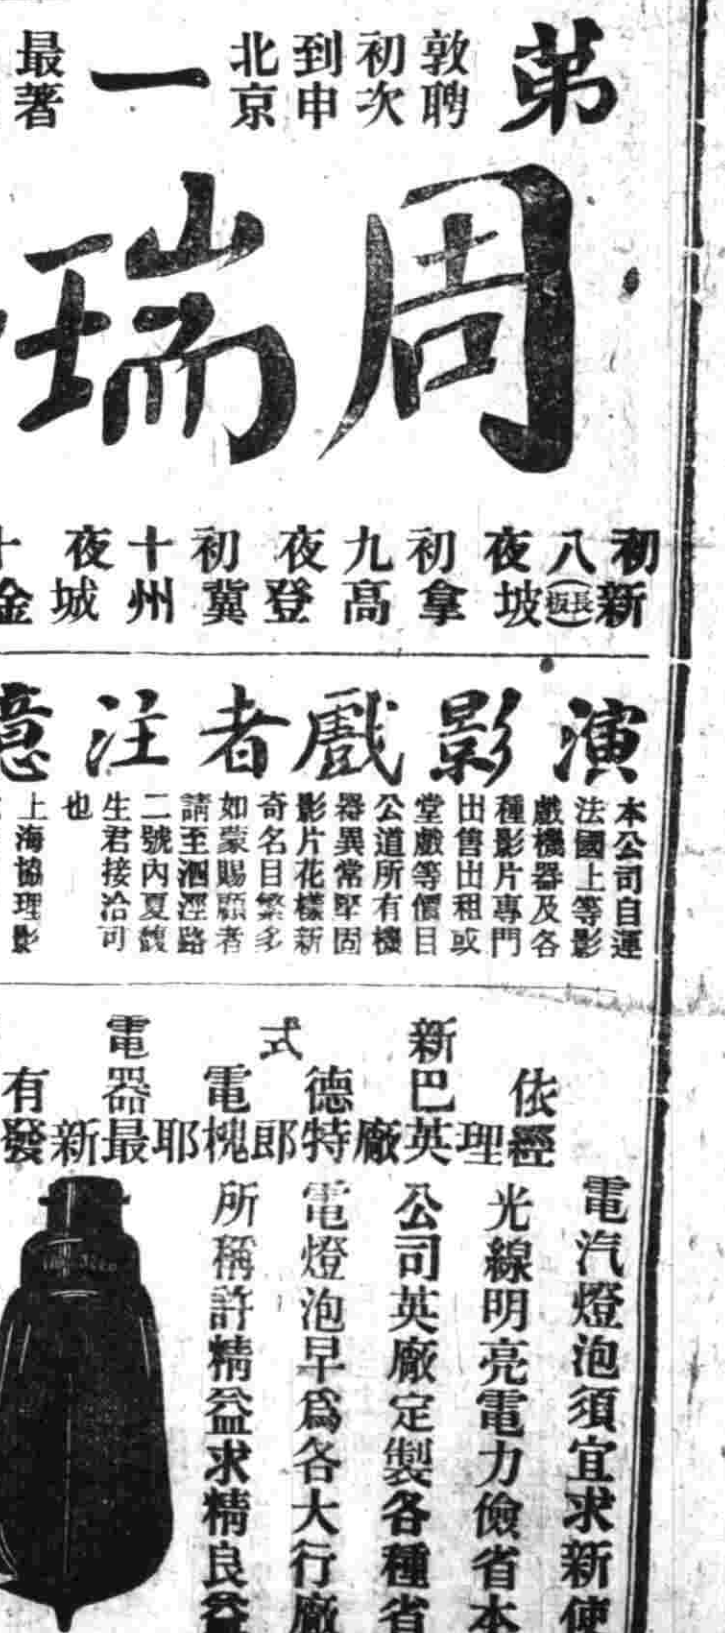 弟
敦聘
初次
到申
北京
一
最著
周瑞
初八夜
初九夜
初十夜
十
新(長板)坡
拿高登
冀州城
金
演影戲者注意
本公司自運
法國上等影
戲機器及各
種影片專門
出售出租或
堂戲等價目
公道所有機
器異常堅固
影片花樣新
奇名目繁多
如蒙賜顧者
請至泗涇路
二號內夏馥
生君接洽可
也
上海協理影
依經
理
新巴英
廠
德特
郎
式
電槐
耶
電器最
新
有發
電汽燈泡須宜求新使
光線明亮電力儉省本
公司英廠定製各種省
電燈泡早爲各大行廠
所稱許精益求精良益